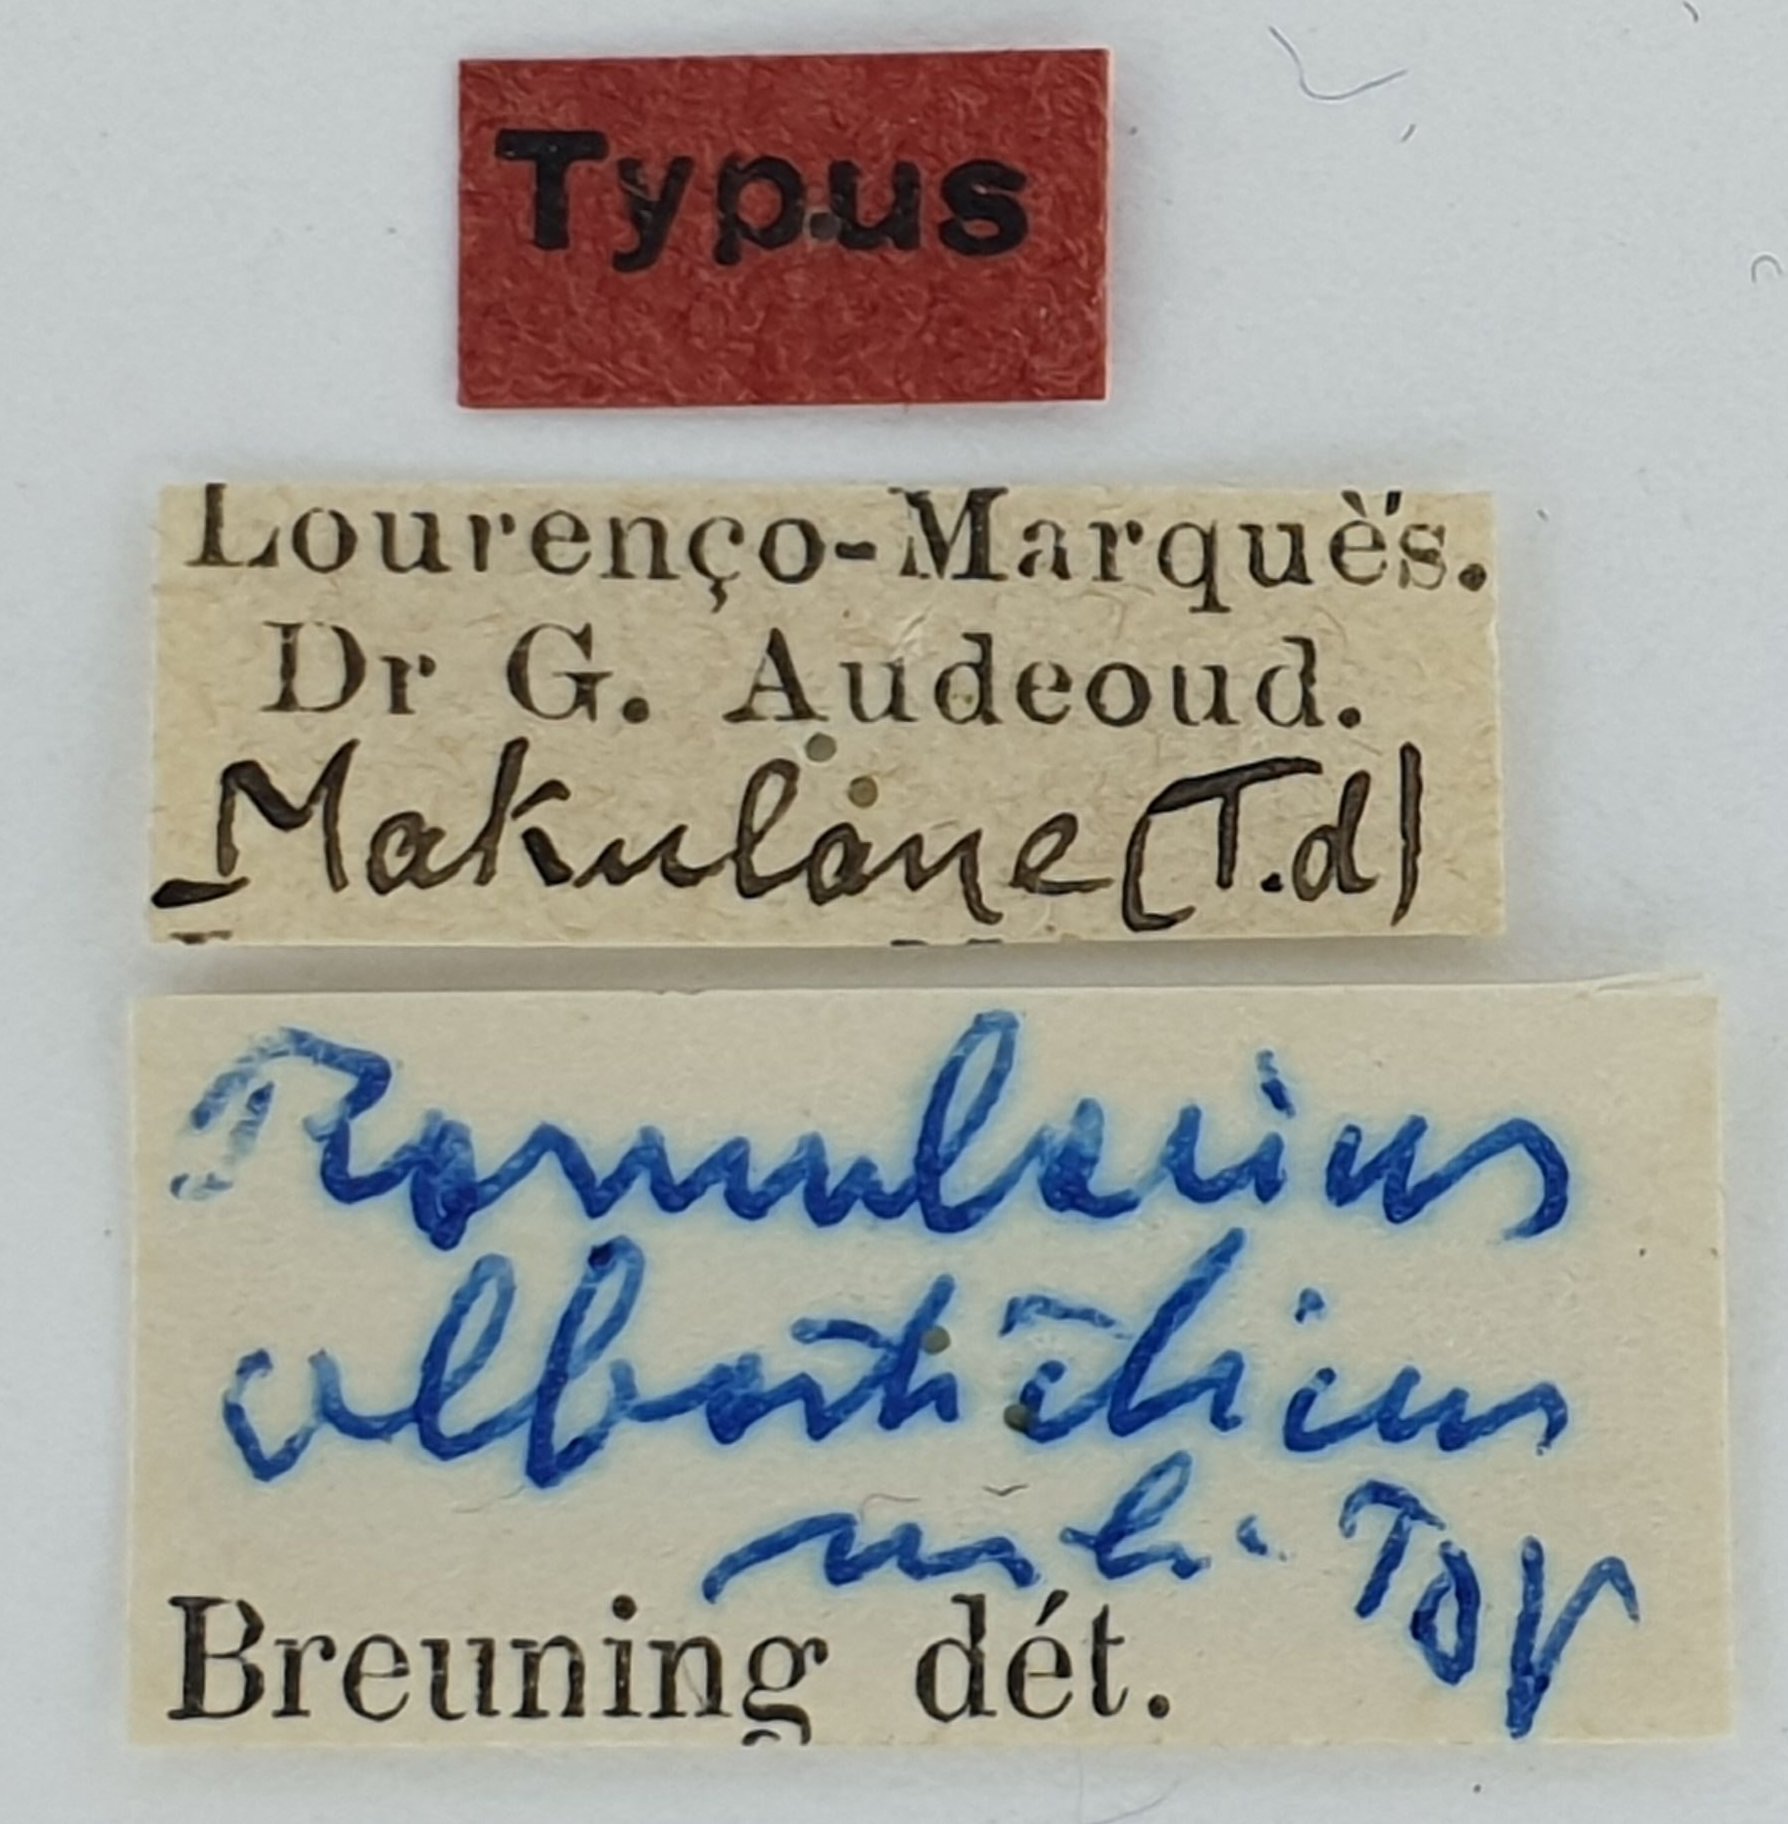 Typus
Lourenço-Marquès.
Dr G. Audeoud.
Makulane (T.d)
Romularius
albosticticus
mihi Typ
Breuning dét.